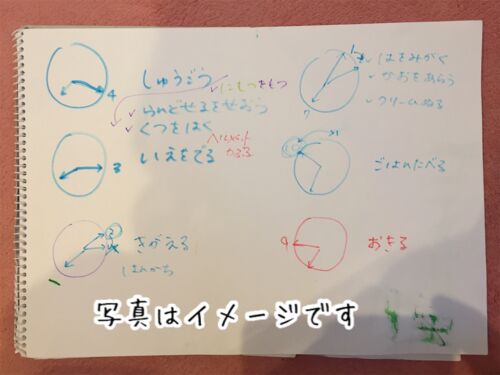 4
しゅうごう
にもつをもつ
らんどせるをせおう
くつをはく
ヘルメット
かぶる
3
いえをでる
きがえる
はんかち
1
はをみがく
かおをあらう
クリームぬる
7
11
ごはんたべる
9
おきる
写真はイメージです